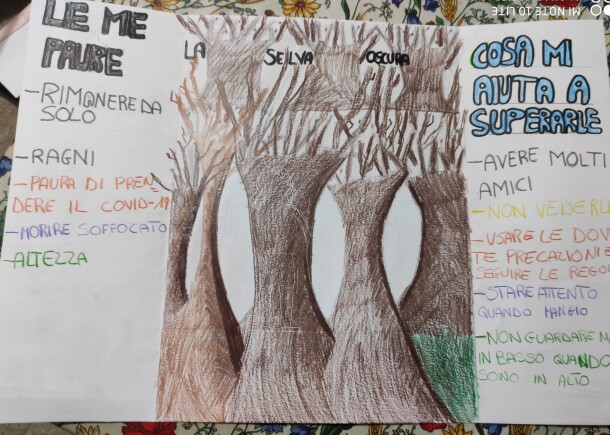 LE MIE
PAURE
-RIMANERE DA
SOLO
-RAGNI
-PAURA DI PREN-
DERE IL COVID-19
-MORIRE SOFFOCATO
-ALTEZZA
LA SELVA OSCURA
COSA MI
AIUTA A
SUPERARLE
-AVERE MOLTI
AMICI
-NON VEDERLI
-USARE LE DOVU
TE PRECAUZIONI E
SEGUIRE LE REGO
-STARE ATTENTO
QUANDO MANGIO
-NON GUARDARE MA
IN BASSO QUANDO
SONO IN ALTO
MI NOTE 10 LITE